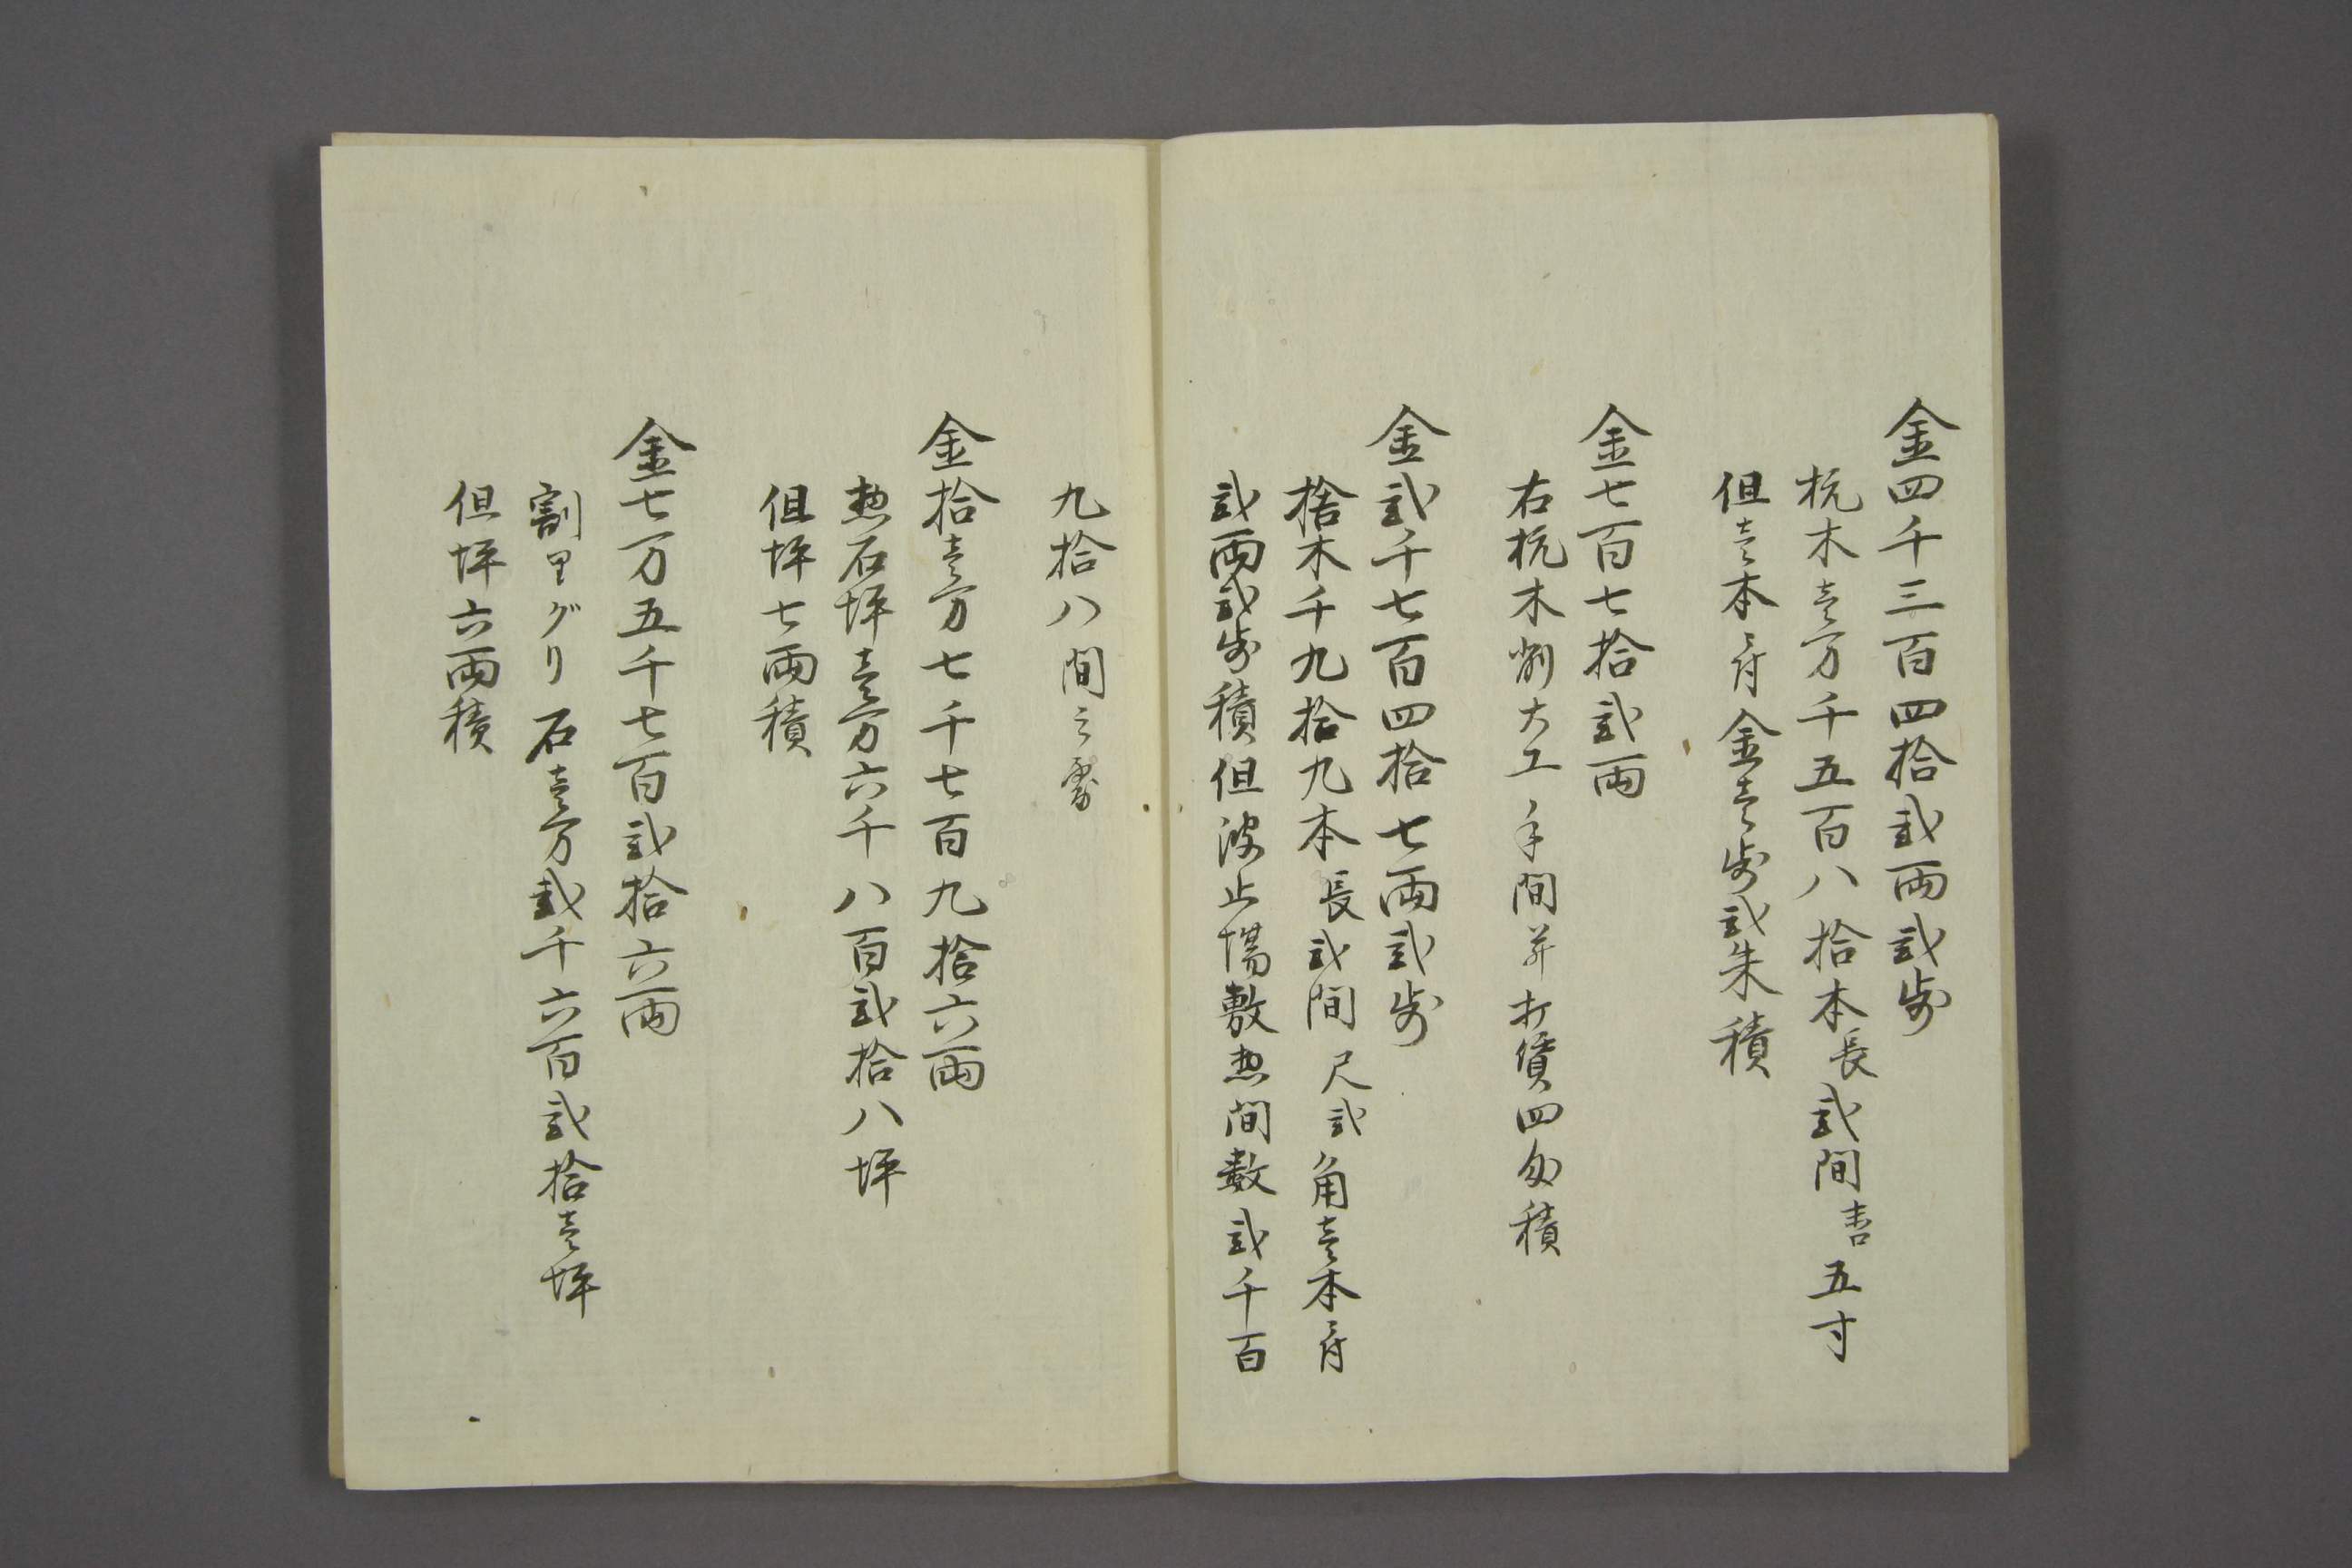 金四千三百四拾弐両弐歩
杭木壱万千五百八拾本長弐間末口五寸
但壱本ニ付金壱歩弐朱積
金七百七拾弐両
右杭木削大工手間并打賃四匁積
金弐千七百四拾七両弐歩
捨木千九拾九本長弐間尺弐角壱本ニ付
弐両弐歩積但波止場敷惣間数弐千百
九拾八間之処
金拾壱万七千七百九拾六両
惣石坪壱万六千八百弐拾八坪
但坪七両積
金七万五千七百弐拾六両
割リグリ石壱万弐千六百弐拾壱坪
但坪六両積